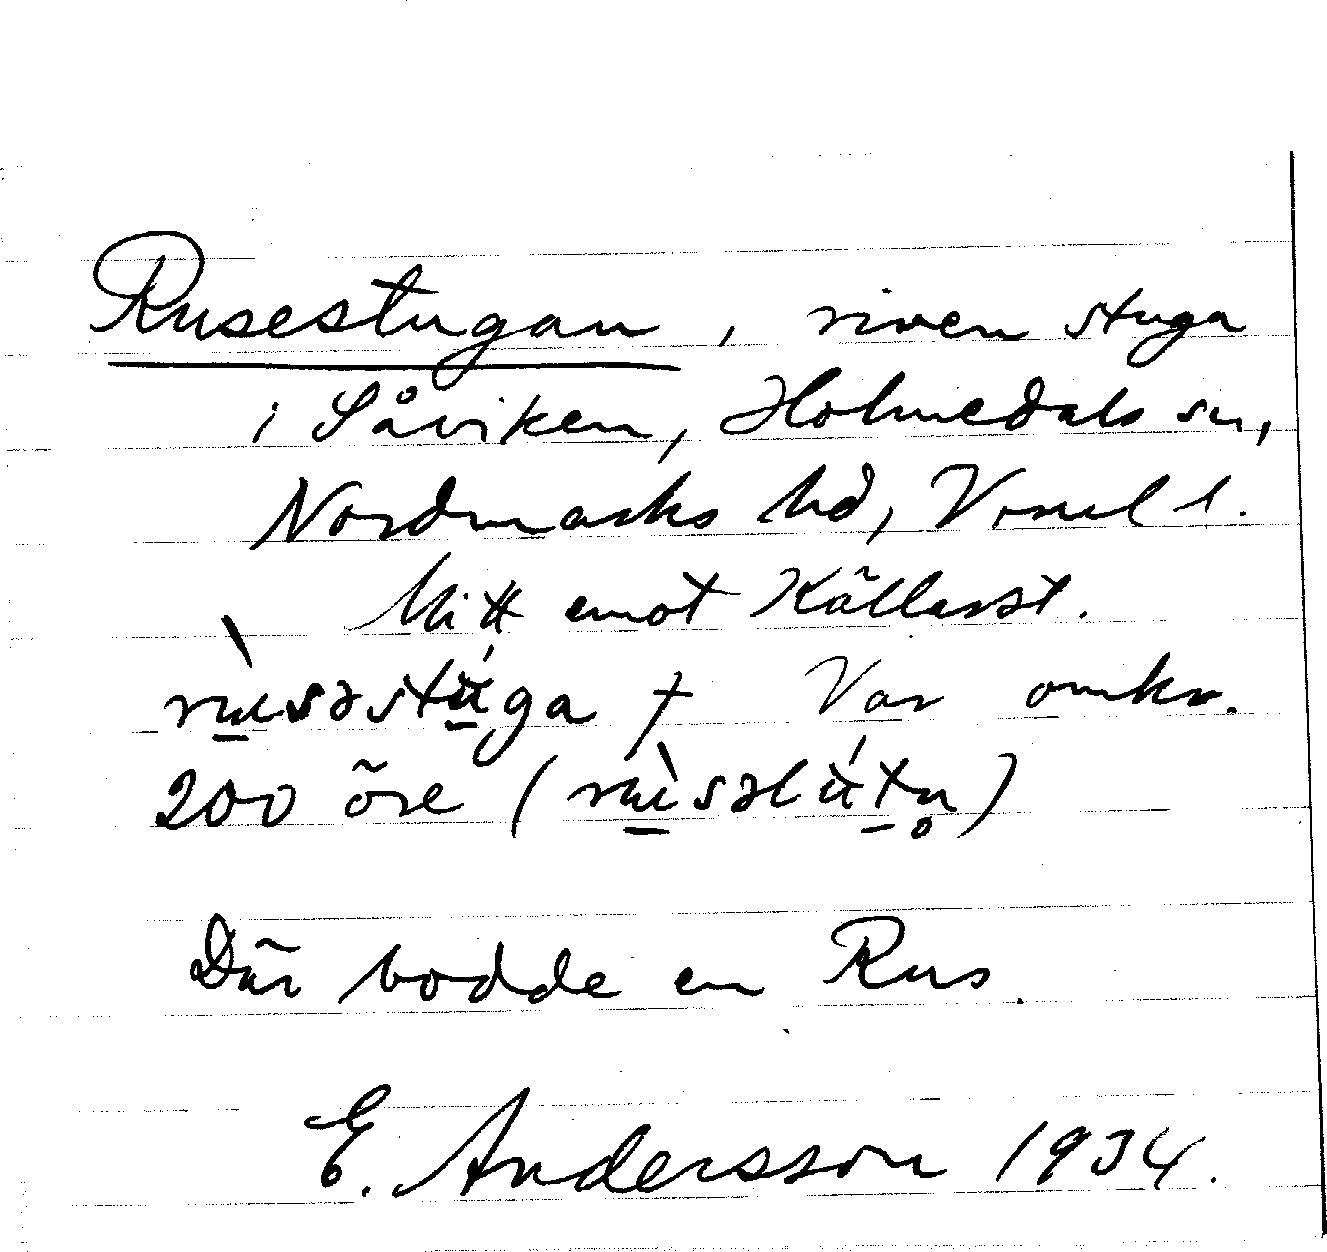 Rusestugan, riven stuga
i Såviken, Holmedals sn,
Nordmarks hd, Vrml l.
Mitt emot Källarst.
rùsəstúga † Var omkr.
200 öre (
Där bodde en Rus.
E. Andersson 1934.